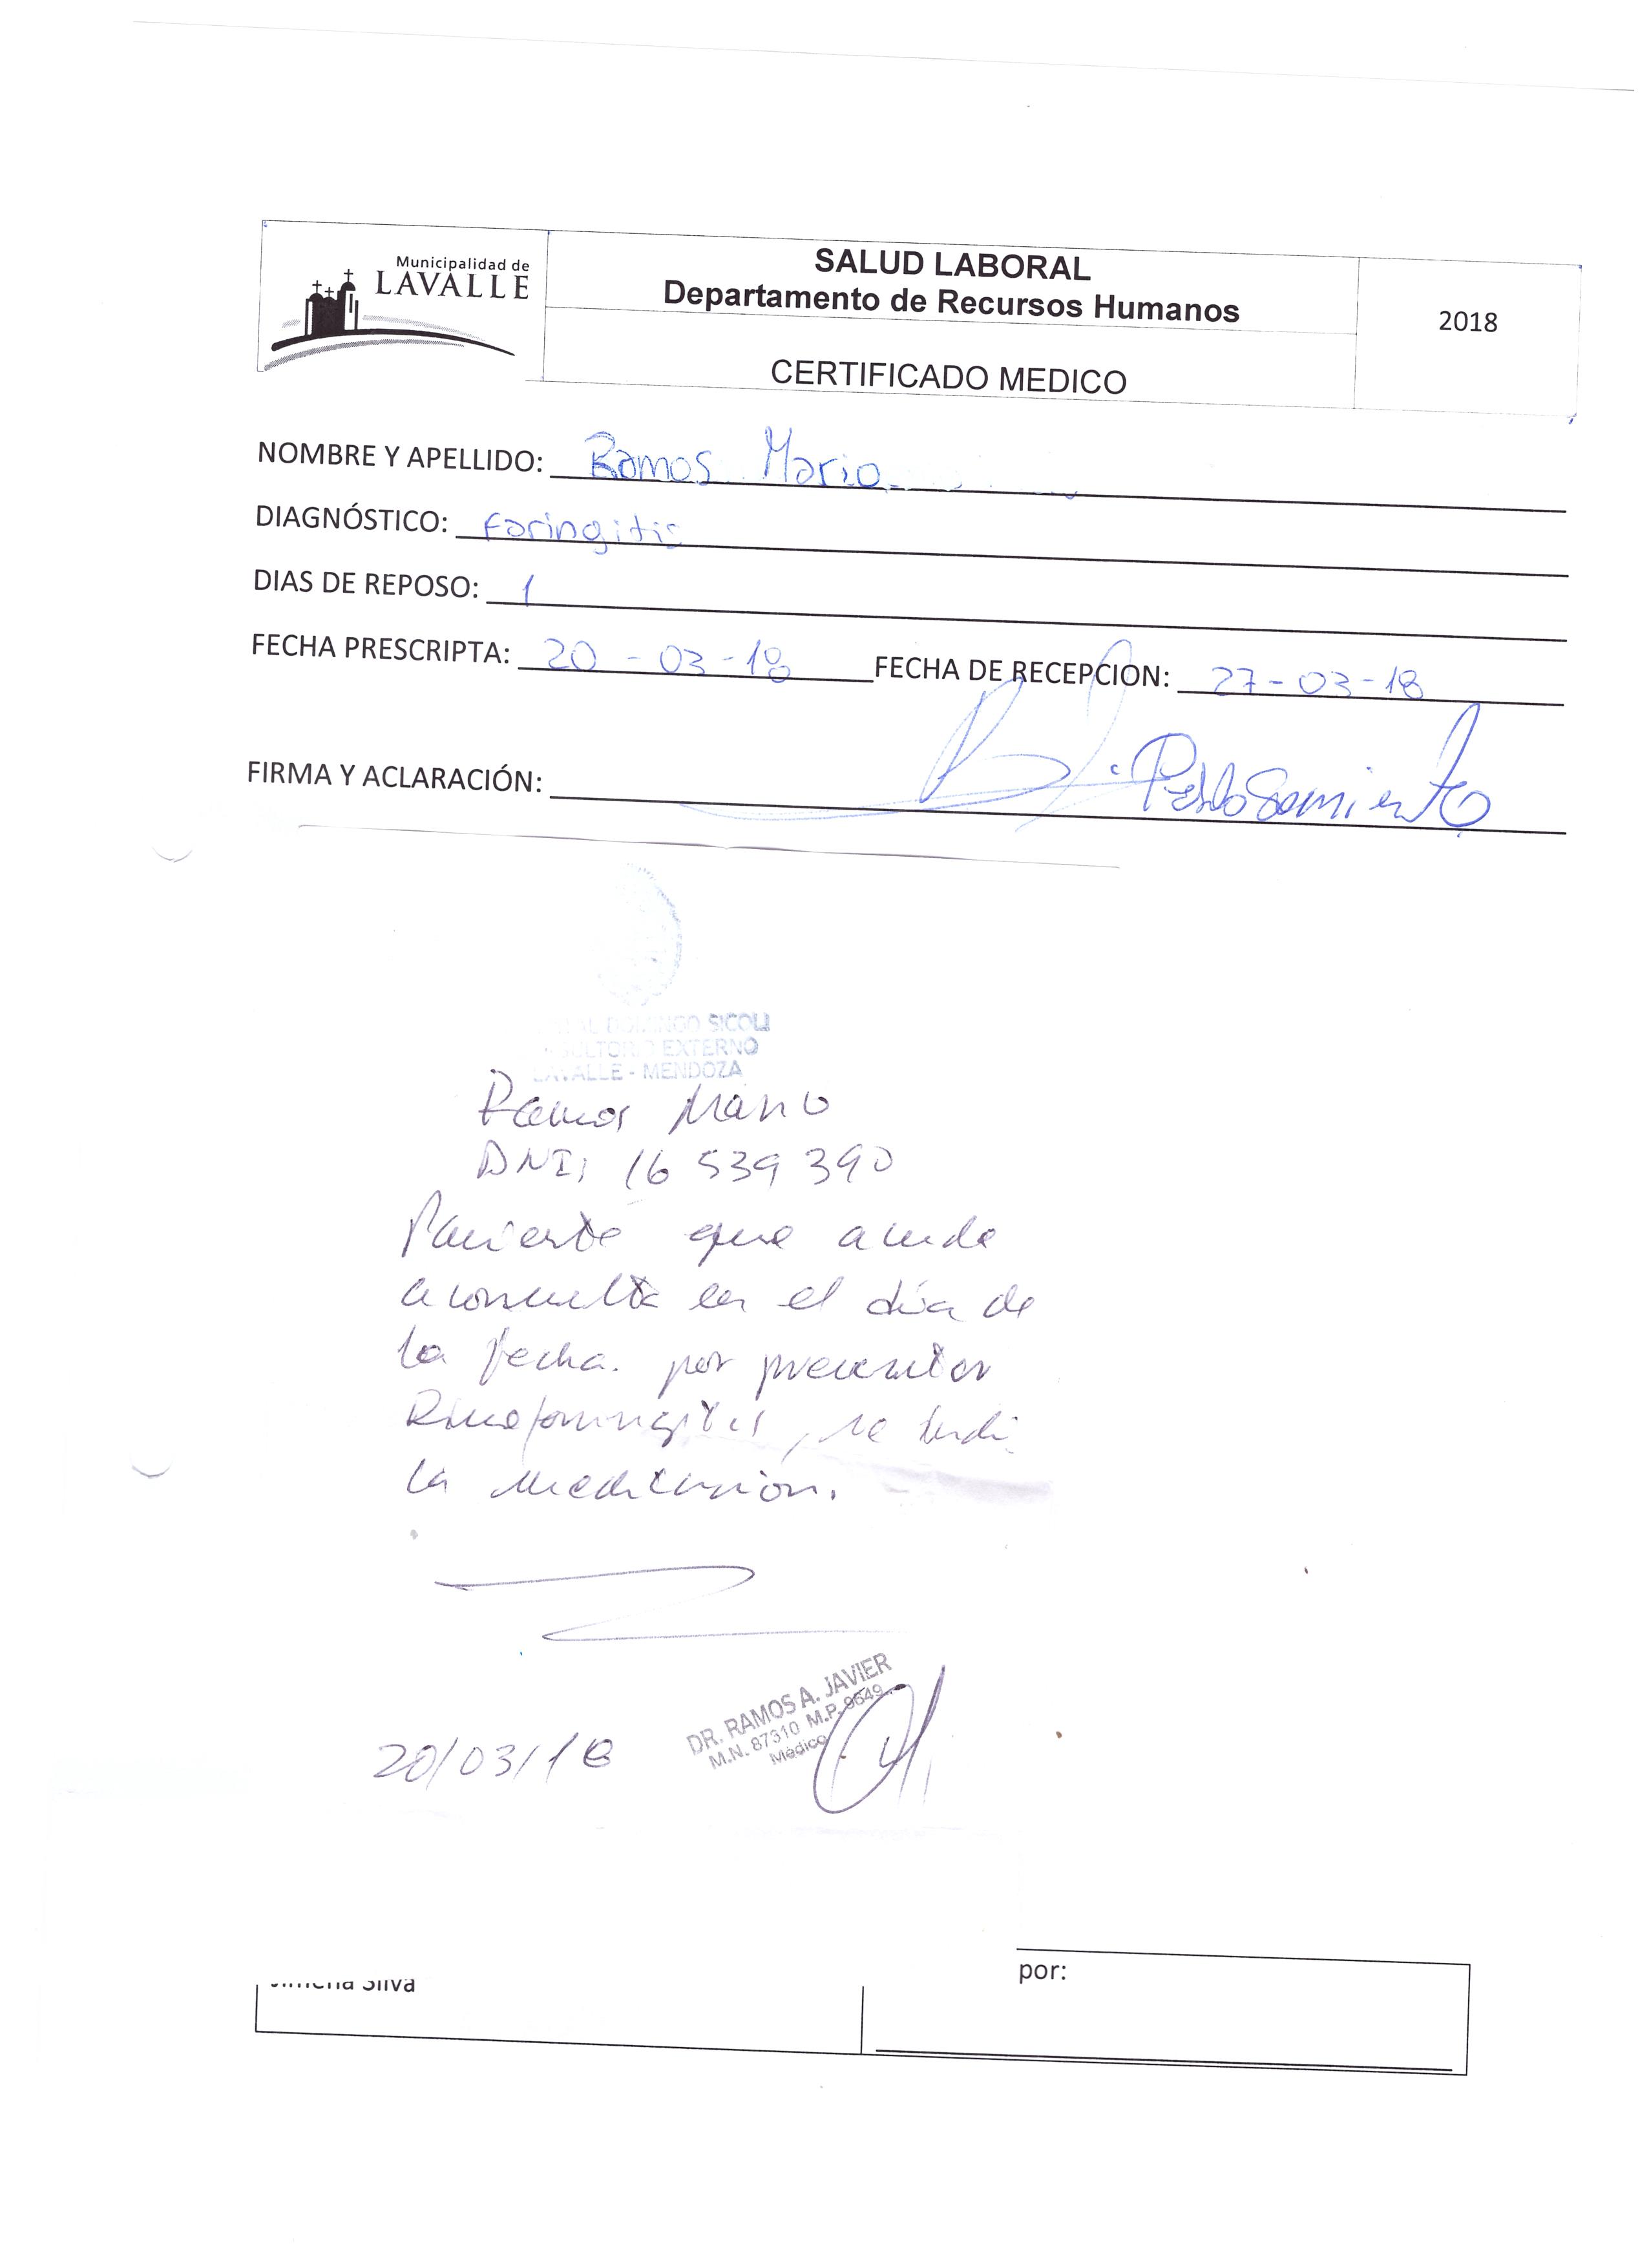 Municipalidad de
LAVALLE
SALUD LABORAL
Departamento de Recursos Humanos
CERTIFICADO MEDICO
2018
NOMBRE Y APELLIDO: Ramos Mario
DIAGNÓSTICO: Faringitis
DIAS DE REPOSO: 1
FECHA PRESCRIPTA: 20-03-18 FECHA DE RECEPCION: 27-03-18
FIRMA Y ACLARACIÓN: Pablo Sarmiento
DOMINGO SICOLI
EXTERNO
LAVALLE - MENDOZA
Ramos Mario
DNI: 16 539 390
Paciente que acude
a consulta en el día de
la fecha. por presentar
Rinofaringitis, se indi
la medicación.
20/03/18
DR. RAMOS A. JAVIER
M.N. 87310 M.P. 9649
Médico
Silva
por: